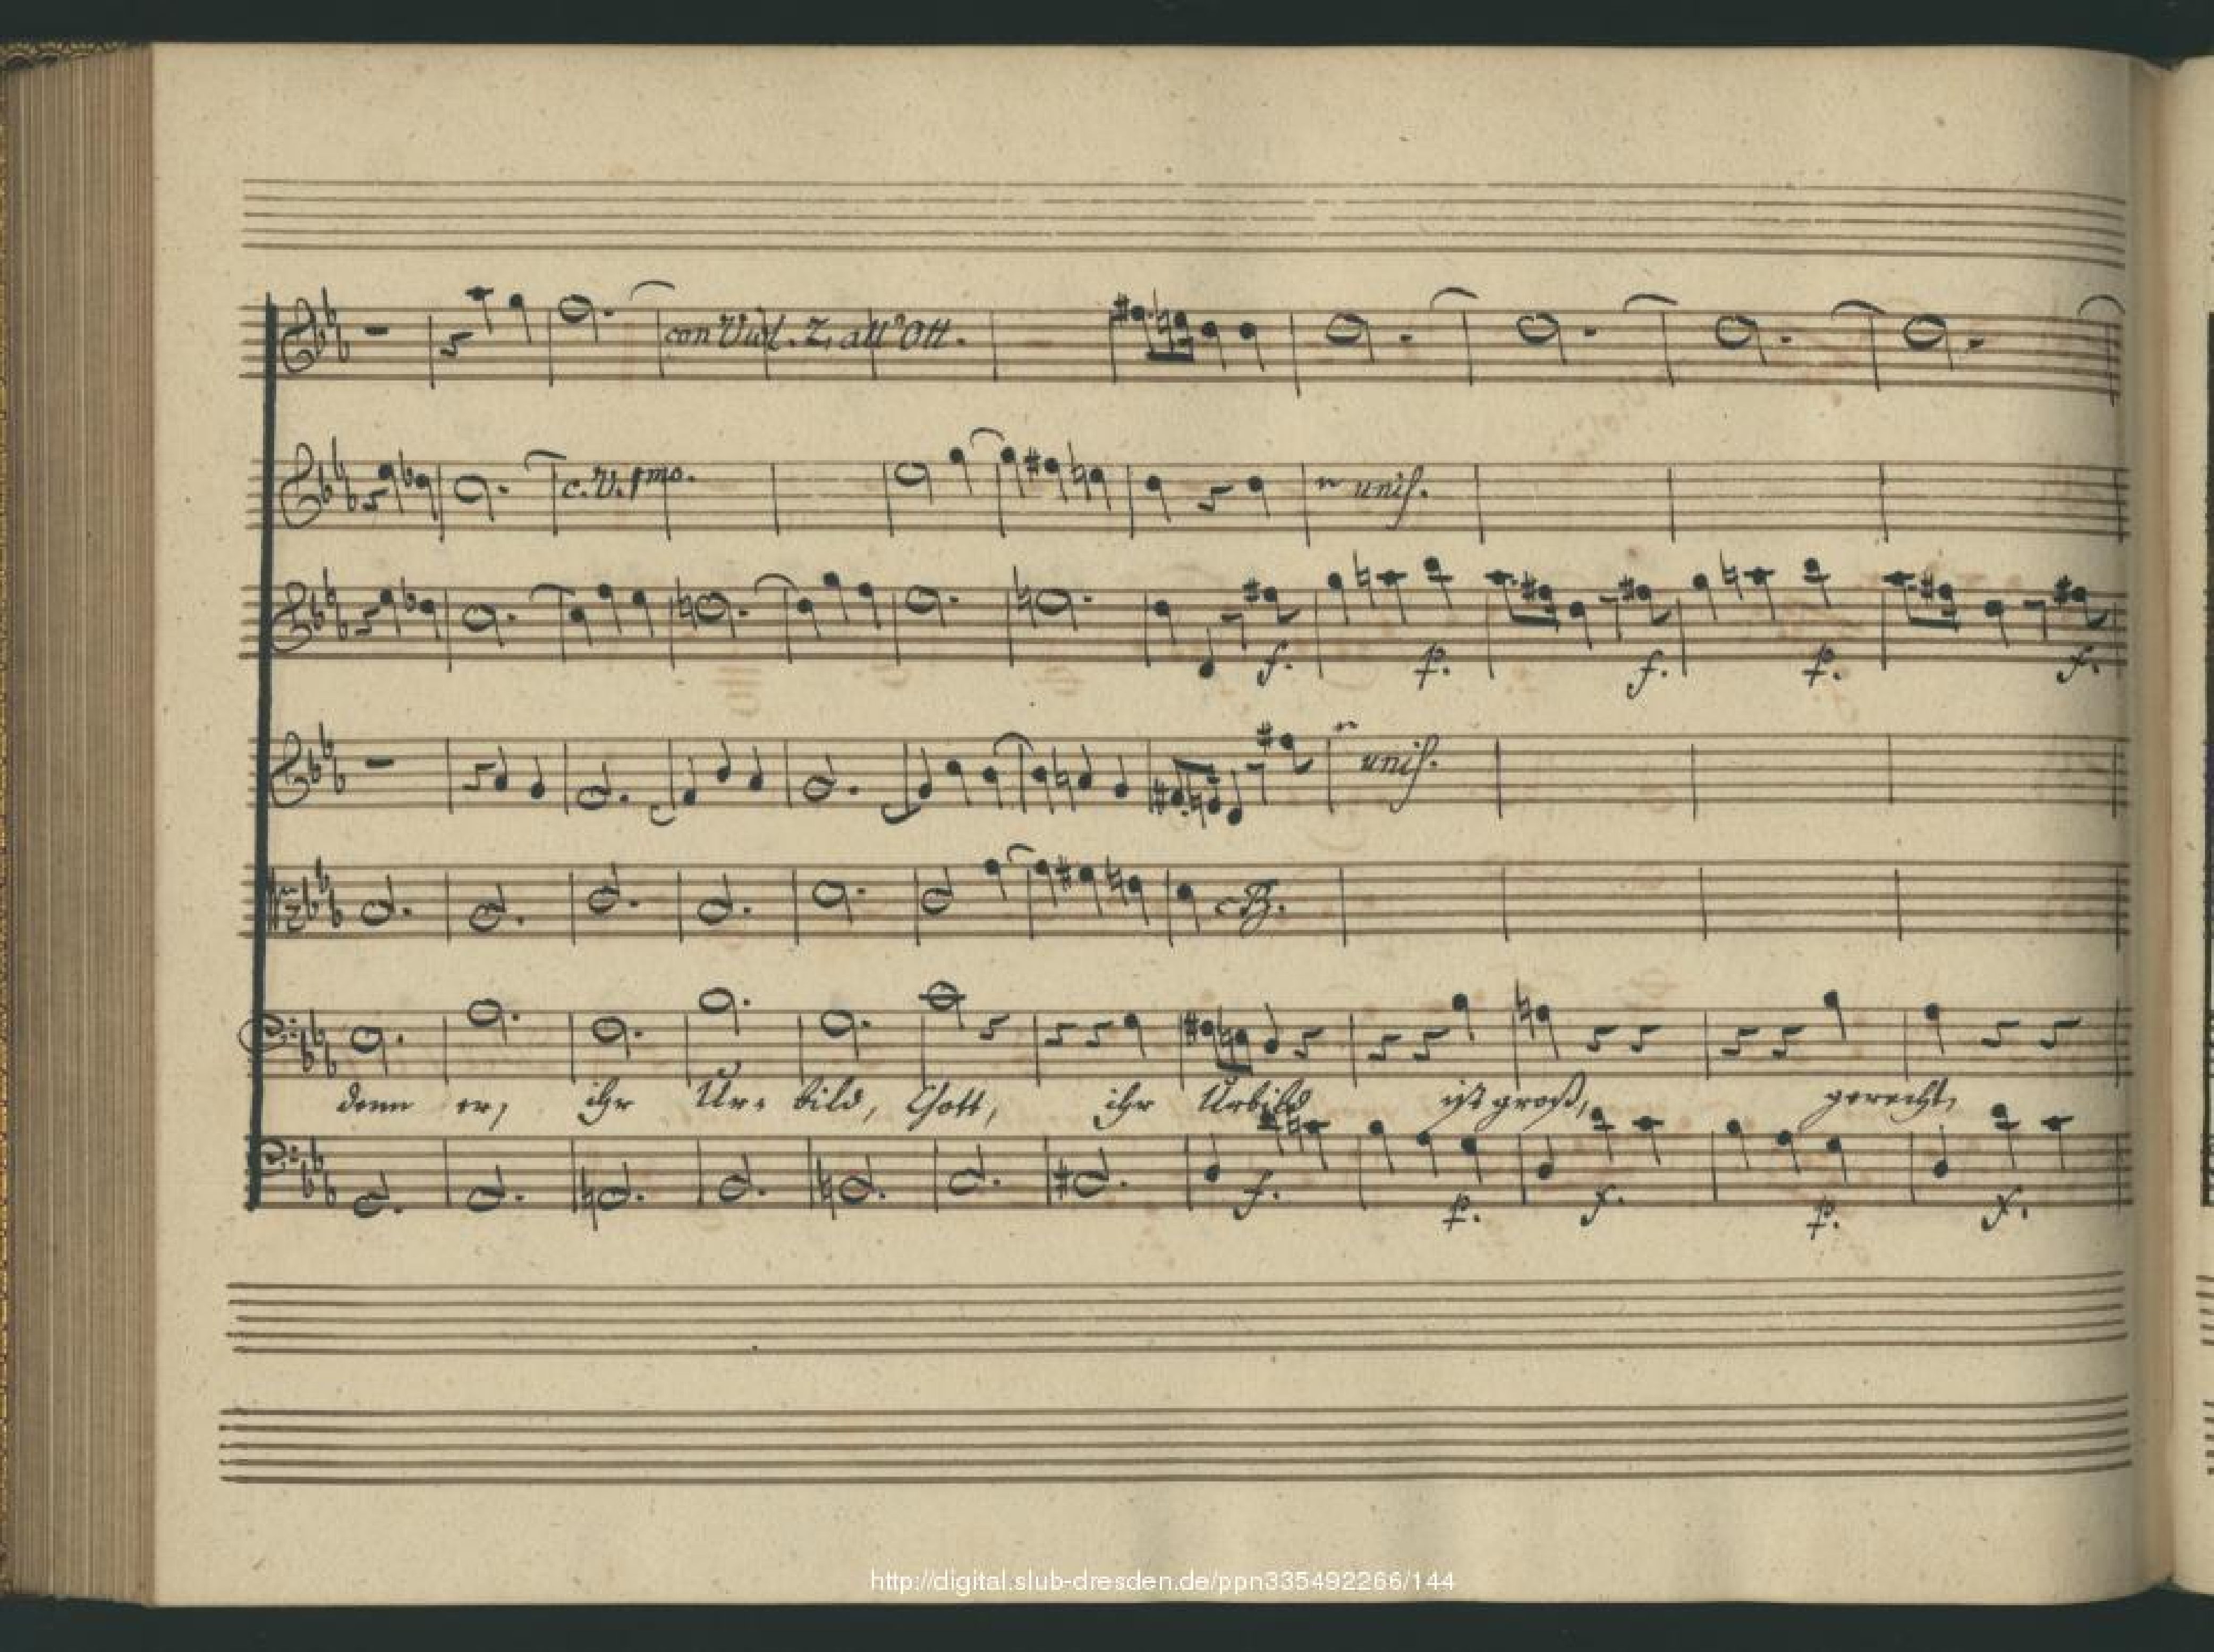 con Viol. 2, all'Ott.
c. V. pmo.
unis.
f. p. f. p. f.
unis.
c B.
denn er, ihr Ur- bild, Gott, ihr Urbild ist groß, gerecht,
f. p. f. p. f.
http://digital.slub-dresden.de/ppn335492266/144